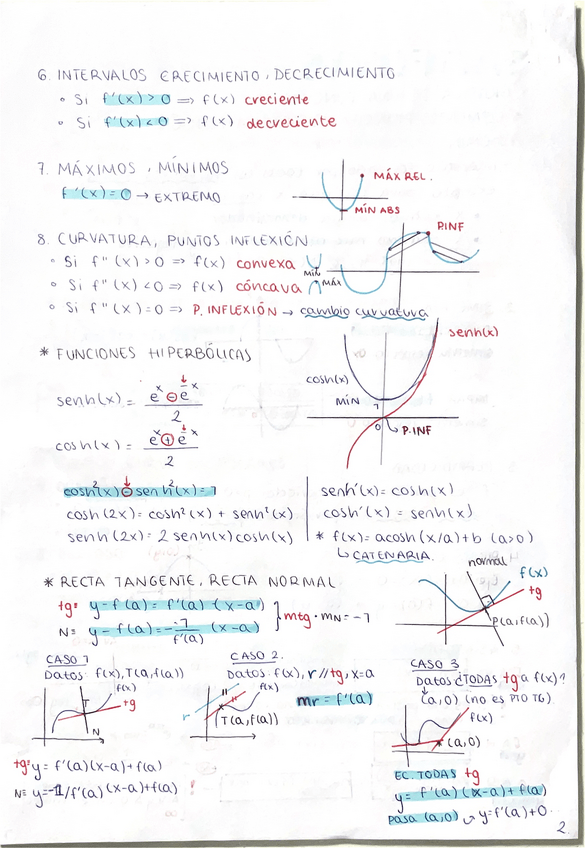 6. INTERVALOS CRECIMIENTO, DECRECIMIENTO
° Si f'(x) > 0 ⇒ f(x) creciente
° Si f'(x) < 0 ⇒ f(x) decreciente
7. MÁXIMOS, MÍNIMOS
f'(x) = 0 → EXTREMO
MÁX REL.
MÍN ABS
8. CURVATURA, PUNTOS INFLEXIÓN
° Si f''(x) > 0 ⇒ f(x) convexa
MÍN
° Si f''(x) < 0 ⇒ f(x) cóncava
MÁX
° Si f''(x) = 0 ⇒ P. INFLEXIÓN → cambio curvatura
P.INF
* FUNCIONES HIPERBÓLICAS
senh(x) = e^x - e^-x / 2
cosh(x) = e^x + e^-x / 2
senh(x)
cosh(x)
MÍN
1
0
P.INF
cosh²(x) - senh²(x) = 1
cosh(2x) = cosh²(x) + senh²(x)
senh(2x) = 2 senh(x) cosh(x)
senh'(x) = cosh(x)
cosh'(x) = senh(x)
* f(x) = acosh(x/a) + b (a>0)
↳ CATENARIA.
* RECTA TANGENTE, RECTA NORMAL
tg: y - f(a) = f'(a) (x-a)
N: y - f(a) = -1/f'(a) (x-a)
mtg · mN = -1
normal
f(x)
tg
P(a, f(a))
CASO 1
Datos: f(x), T(a, f(a))
f(x)
T
tg
N
tg: y = f'(a)(x-a) + f(a)
N: y = -1/f'(a) (x-a) + f(a)
CASO 2.
Datos: f(x), r // tg, x=a
r
f(x)
T(a, f(a))
mr = f'(a)
CASO 3
Datos ¿TODAS tg a f(x)?
(a,0) (no es PTO TG)
f(x)
(a,0)
EC. TODAS tg
y = f'(a) (x-a) + f(a)
pasa (a,0) y = f'(a) + 0
2.